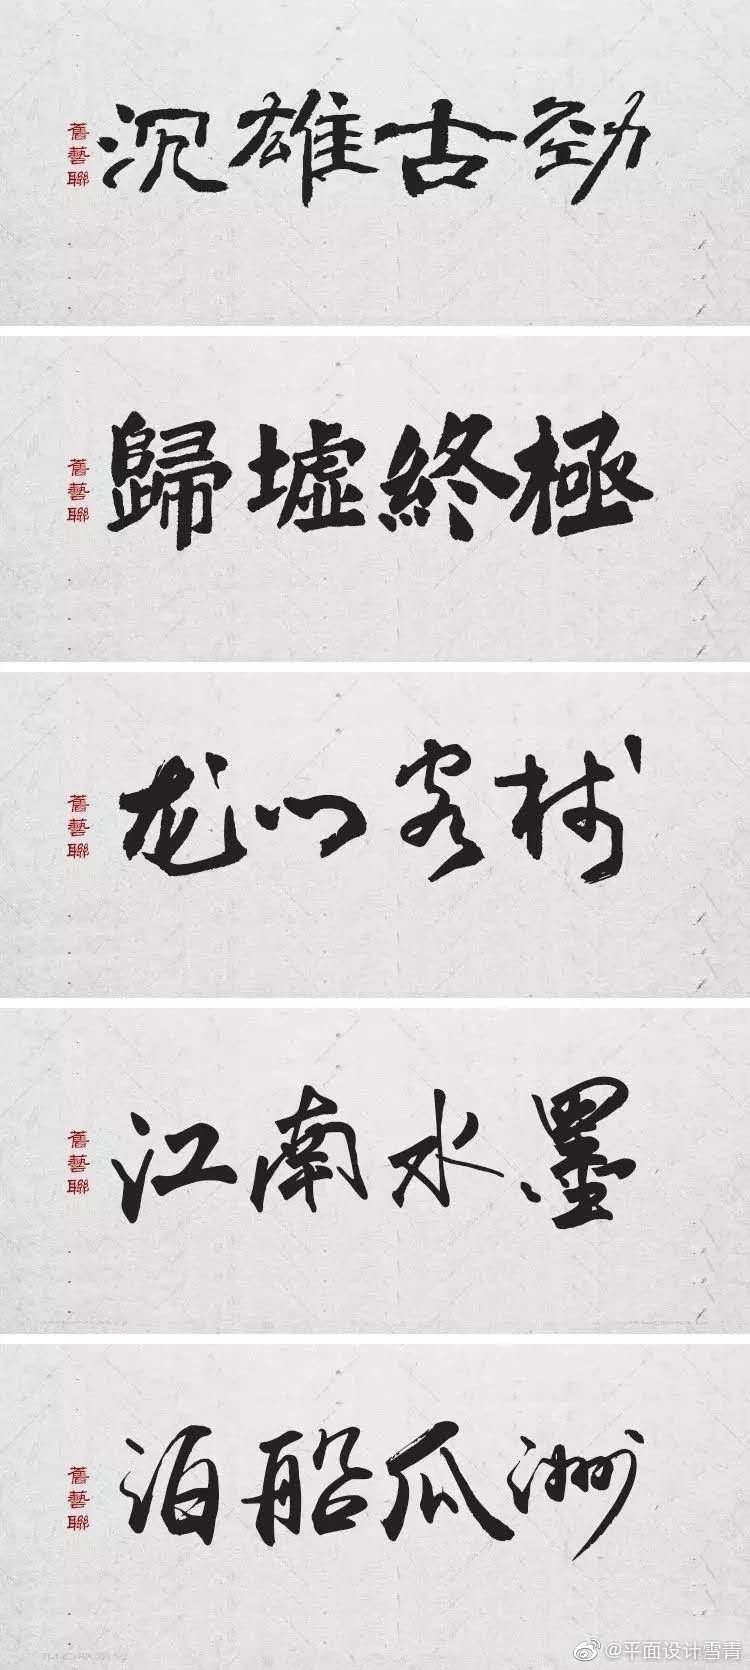 舊藝聯
沉雄古勁
舊藝聯
歸墟終極
舊藝聯
龙门客栈
舊藝聯
江南水墨
舊藝聯
泊船瓜洲
@平面设计雪青